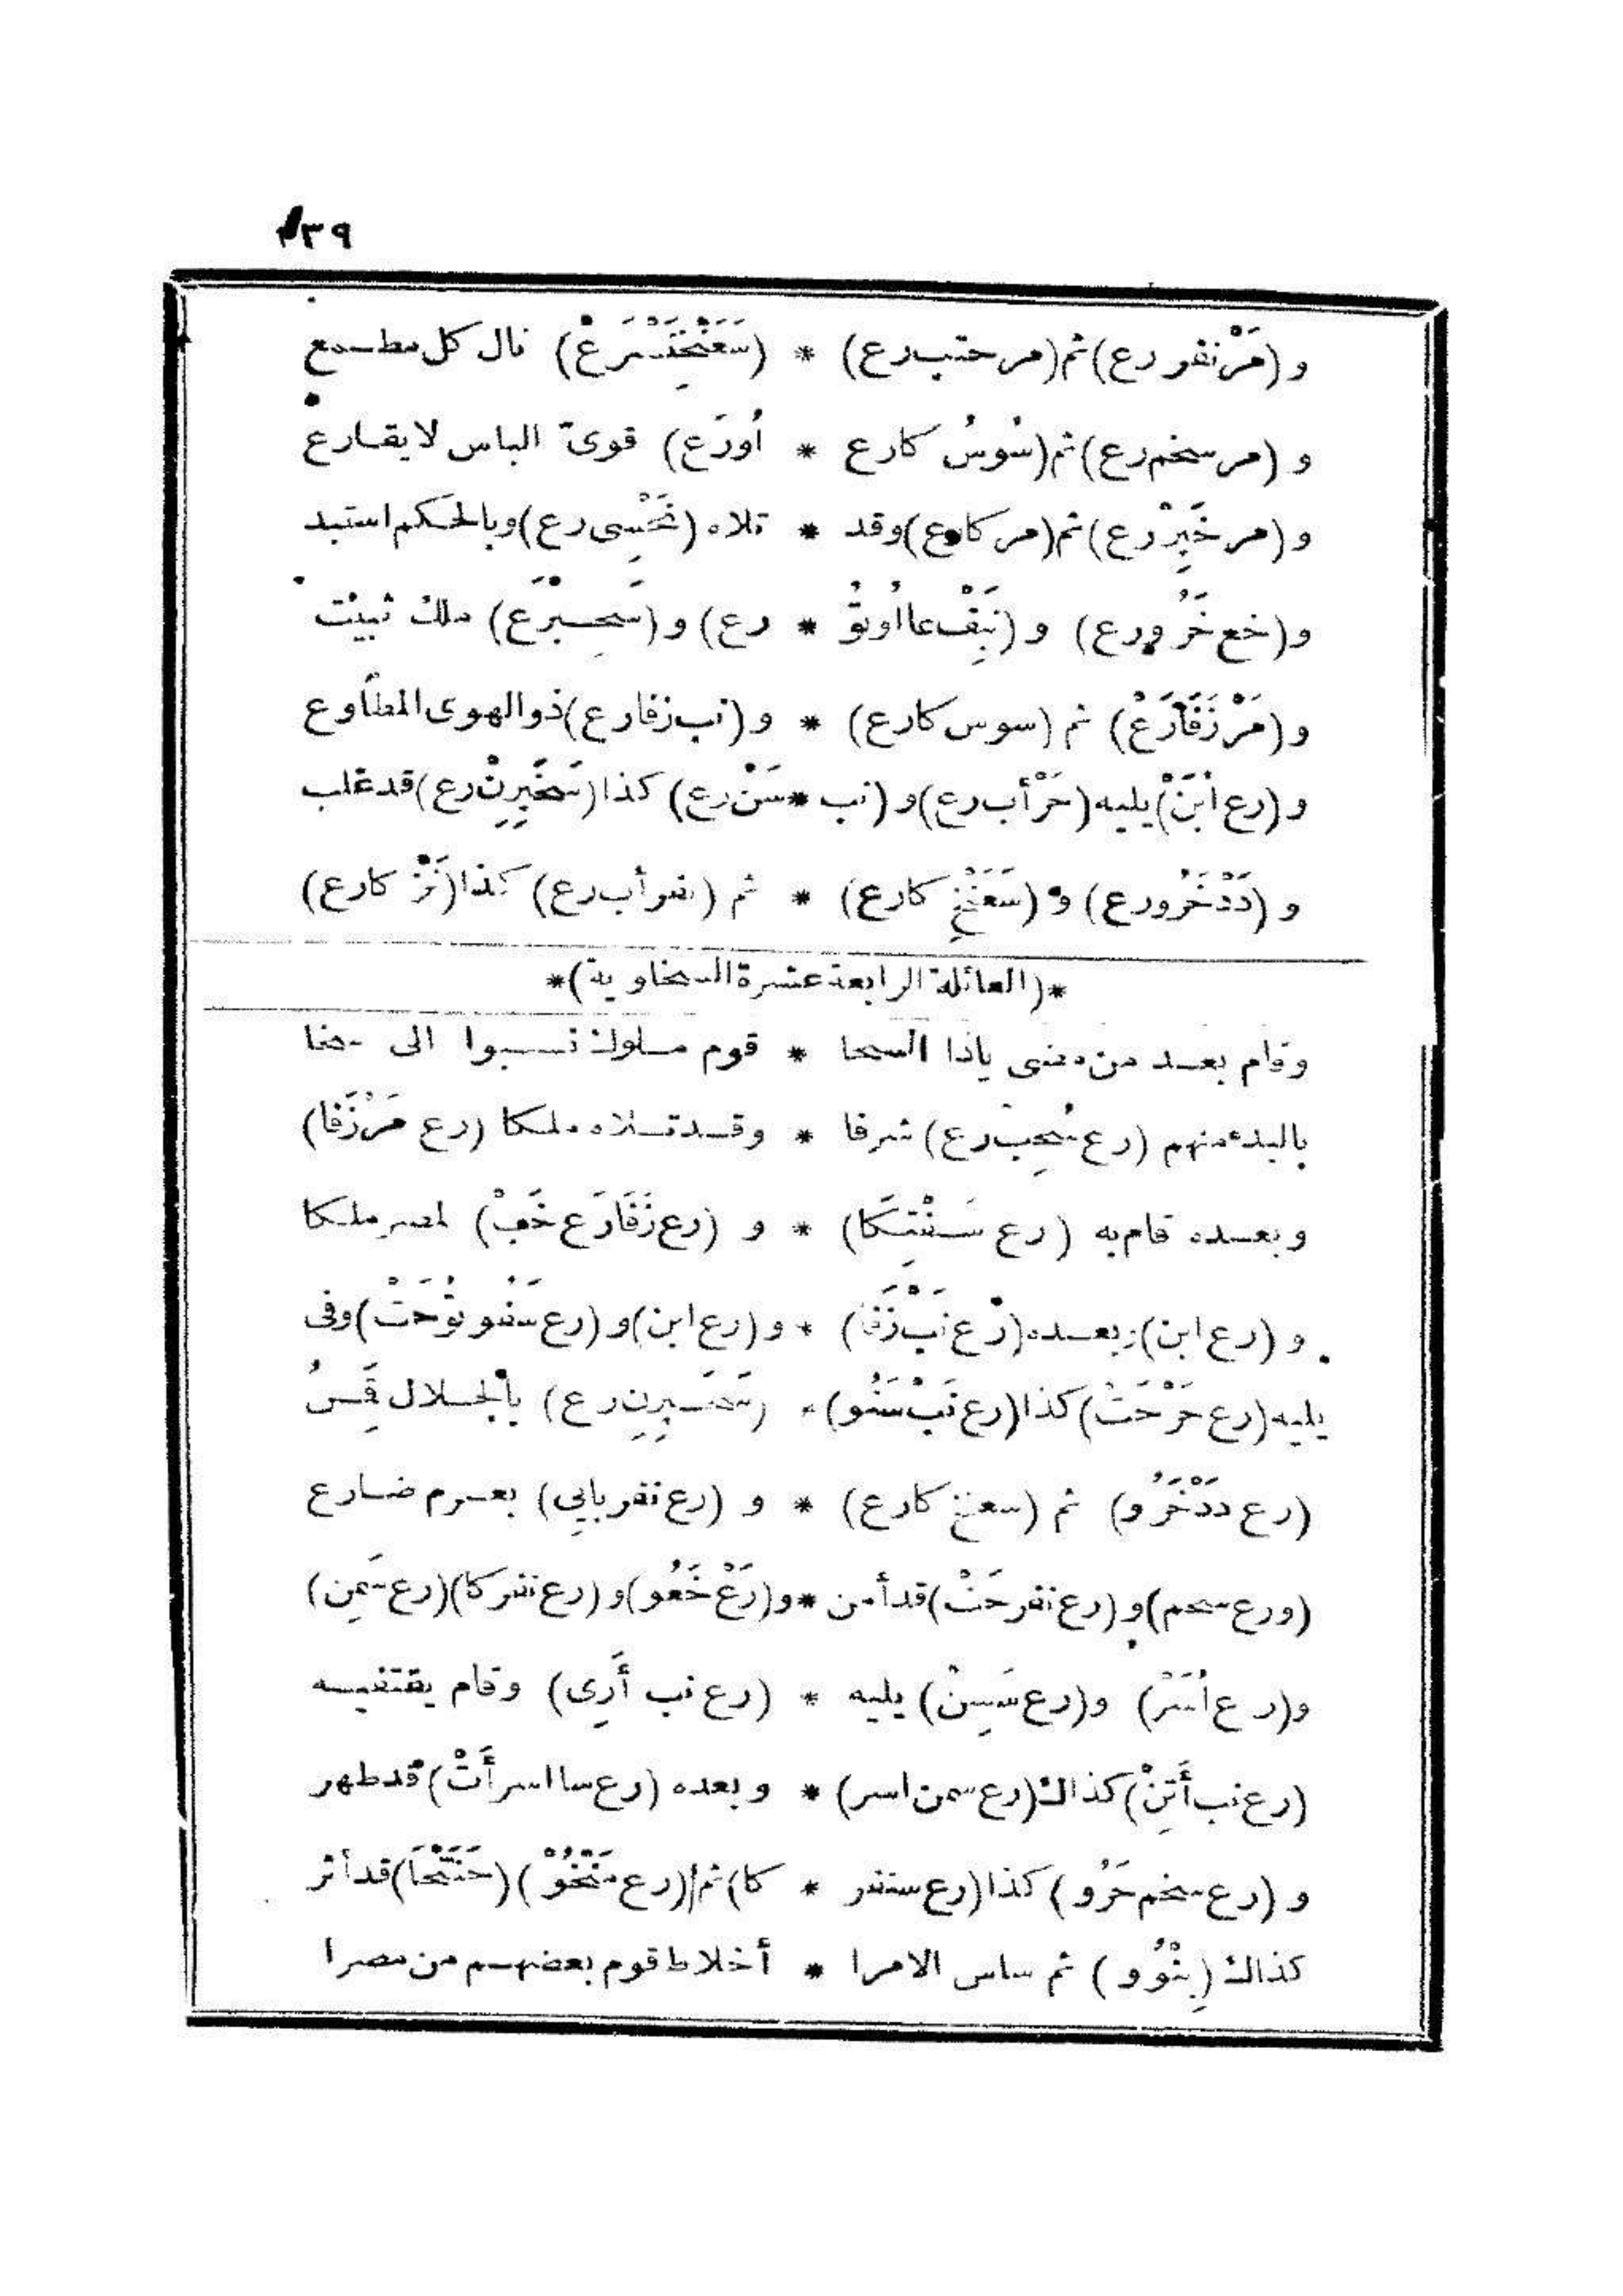 ١٣٩
و (مَرْنفورع) ثم (مرحتبرع) * (سَعَنْخْتَسْرَعْ) نال كل مطمع
و (مرسخم رع) ثم (سُوسُ كارع * أُورَع) قوىّ الباس لا يقارع
و (مرخَبِرْرع) ثم (مر كاوع) وقد * تلاه (نَحْسِى رع) وبالحكم استبد
و (خع خَرُورع) و (نَبِفْ عا اُوتُو * رع) و (سَحِبْرَع) ملك ثبيت
و (مَرْزَفَارَعْ) ثم (سوس كارع) * و (نب زفارع) ذو الهوى المطاوع
و (رع اُبَنْ) يليه (حَرْ أب رع) و (نب * سَنْ رع) كذا (سَخَبِرِنْ رع) قد غلب
و (دَدْخَرُورع) و (سَعَنْخِ كارع) * ثم (نفر أب رع) كذا (نَزْ كارع)
*(العائلة الرابعة عشرة السخاوية)*
وقام بعد من مضى ياذا السخا * قوم ملوك نسبوا الى سخا
بالبدء منهم (رع سُحِب رع) شرفا * وقد تلاه ملكا (رع مَرْزَفا)
وبعده قام به (رع سَنْتِكَا) * و (رع زَفَارَع خَبْ) لمصر ملكا
و (رع ابن) وبعده (رْع نَبْ زَفَا) * و (رع ابن) و (رع سَفُو تُوحَتْ) وفى
يليه (رع حَرْحَتْ) كذا (رع نَبْ سَنُو) * (سَخَبِرِن رع) بالجلال قَمِسُ
(رع ددْخَرُو) ثم (سعنخ كارع) * و (رع نفر بابِي) بعرم ضارع
(ورع سحم) و (رع نفر حَتْ) قد أمن * و (رَعْ خَعُو) و (رع نفر كا) (رع سَمِن)
و (رع اُسَرْ) و (رع سَسِنْ) يليه * (رع نب أَرِى) وقام يقتفيه
(رع نب أَتِنْ) كذاك (رع سمن اسر) * وبعده (رع سا اسر أَتْ) قد طهر
و (رع سخم حَرُو) كذا (رع ستنفر * كا) ثم (رع مَنْتْخُوْ) (حَنَتْحَا) قد أثر
كذاك (بِنْوُو) ثم ساس الامرا * أخلاط قوم بعضهم من مصرا